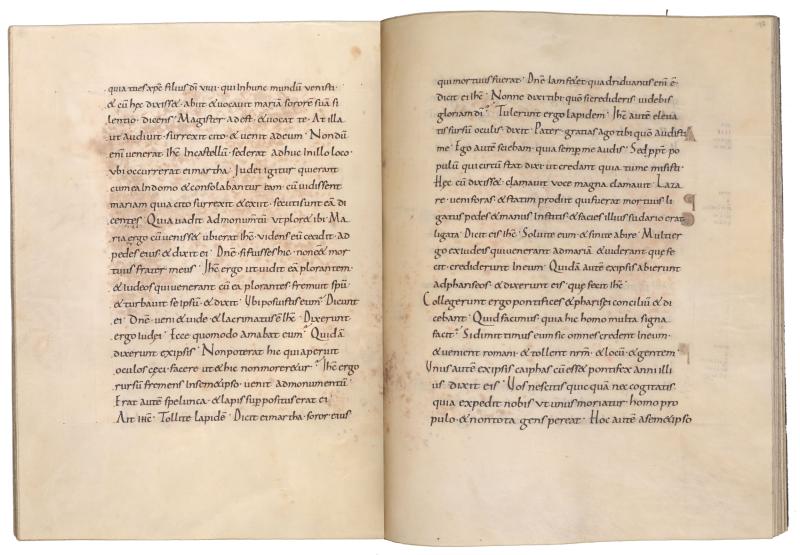 quia tu es xpe filius di uiui · qui in hunc mundū uenisti ·
& cū hęc dixiss& · abiit & uocauit mariā sororē suā si
lentio · dicens · Magister adest · & uocat te · At illa
ut audiuit · surrexit cito · & uenit ad eum · Nondū
enī uenerat ihc in castellū · sed erat adhuc in illo loco ·
ubi occurrerat ei martha · Iudei igitur qui erant
cum ea in domo & consolabantur eam · cū uidissent
mariam quia cito surrexit & exiit · secuti sunt eā di
centes · Quia uadit ad monumtū · ut plor& ibi · Ma
ria ergo cūueniss& ubi erat ihc · uidens eū cecidit ad
pedes eius & dixit ei · Dnē · si fuisses hic · non ess& mor
tuus frater meus · Ihc ergo ut uidit eā plorantem ·
& iudeos qui uenerant cū ea plorantes · fremuit spū
& turbauit se ipsū · & dixit · Ubi posuistis eum · Dicunt
ei · Dnē · ueni & uide · & lacrimatus ē ihc · Dixerunt
ergo iudei · Ecce quomodo amabat eum · Quidā
dixerunt ex ipsis · Non poterat hic qui aperuit
oculos cęci · facere ut & hic non morer&ur · Ihc ergo
rursū fremens in sem&ipso · uenit ad monumentū ·
Erat autē spelunca · & lapis suppositus erat ei ·
Ait ihc · Tollite lapidē · Dicit ei martha · soror eius
qui mortuus fuerat · Dnē · Iam f&&et quadriduanus enī ē ·
dicit ei ihc · Nonne dixi tibi quō si credideris uidebis
gloriam di · Tulerunt ergo lapidem · Ihc autē eleua
tis sursū oculis · dixit · Pater · gratias ago tibi quō audisti
me · Ego autē sciebam · quia semp me audis · Sed ppt po
pulū qui circū stat dixi ut credant quia tu me misisti ·
Hęc cū dixiss& · clamauit uoce magna clamauit · Laza
re · ueni foras · & statim prodiit qui fuerat mortuus li
gatus pedes & manus institis · & facies illius sudario erat
ligata · Dicit eis ihc · Soluite eum · & sinite abire · Multi er
go ex iudeis qui uenerant ad mariā · & uiderant quę fe
cit · crediderunt in eum · Quidā autē ex ipsis abierunt
ad phariseos · & dixerunt eis · quę fecit ihc ·
Collegerunt ergo pontifices & pharisei conciliū · & di
cebant · Quid facimus quia hic homo multa signa
facit · Si dimittimus eum sic omnes credent in eum ·
& uenient romani · & tollent nrm̄ · & locū · & gentem ·
Unus autē ex ipsis caiphas cū ess& pontifex anni illi
us dixit eis · Uos nescitis quicquā nec cogitatis ·
quia expedit nobis ut unus moriatur homo pro
pulo · & non tota gens pereat · Hoc autē a sem&ipso